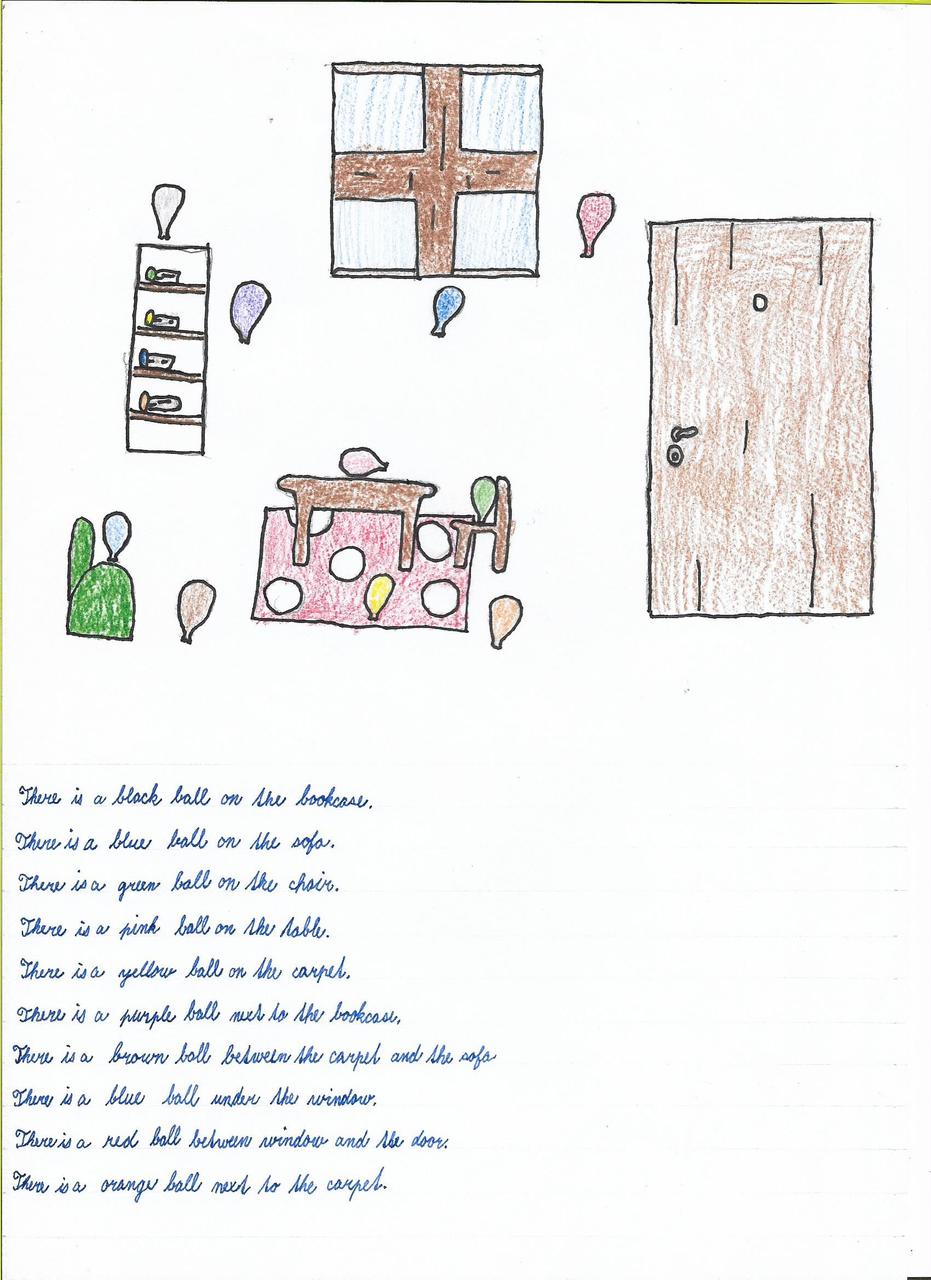 There is a black ball on the bookcase.
There is a blue ball on the sofa.
There is a green ball on the chair.
There is a pink ball on the table.
There is a yellow ball on the carpet.
There is a purple ball next to the bookcase.
There is a brown ball between the carpet and the sofa
There is a blue ball under the window.
There is a red ball between window and the door.
There is a orange ball next to the carpet.